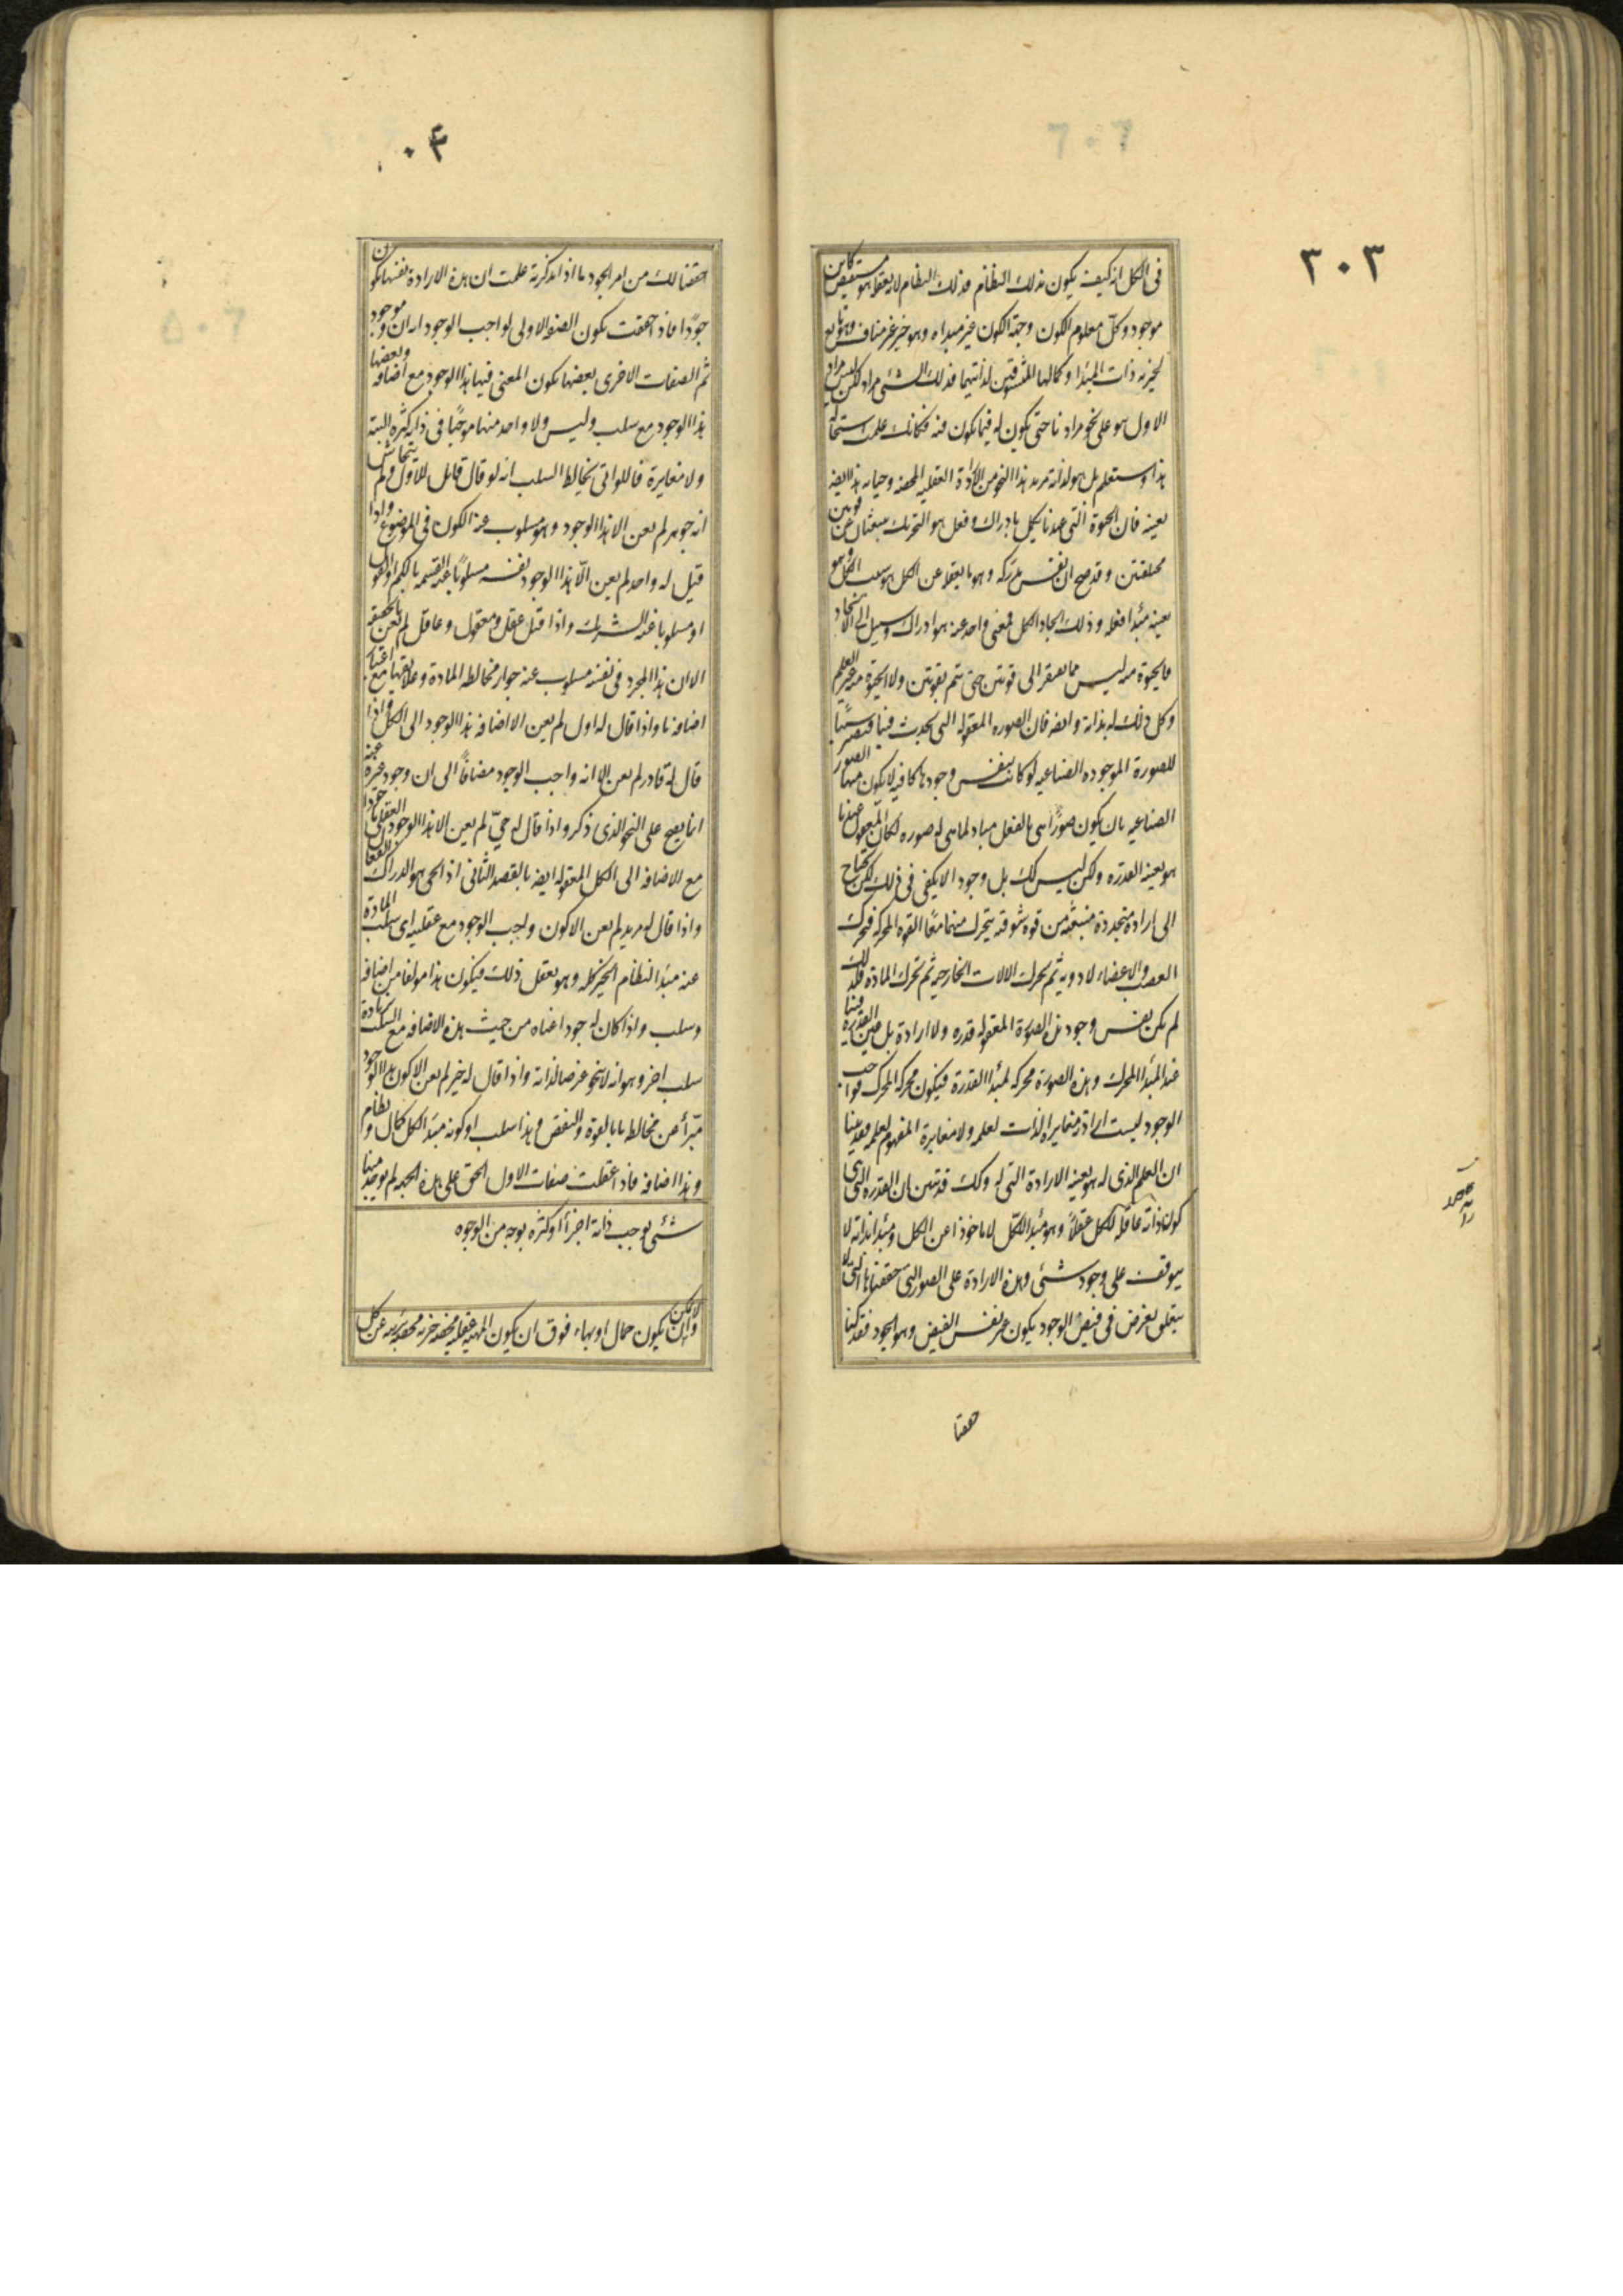 ٣٠٣
فى الكل انه كيف يكون فذلك النظام فذلك النظام لانه يعقله هو مستفيض كاين
موجود وكل معلوم الكون وجهة الكون عن مبدأه وهو خير غير مناف وهو تابع
لخيرية ذات المبدأ وكمالها المعشوقين لذاتيهما فذلك الشئ مراد لكن ليس مراد
الاول هو على نحو مرادنا حتى يكون له فيما يكون عنه فكانك علمت استحالة
هذا وستعلم بل هو لذاته مريد هذا النحو من الارادة العقلية المحضة وحياته هذا ايضا
بعينه فان الحيوة التى عندنا تكمل بادراك وفعل هو التحريك ينبعثان عن قوتين
مختلفتين وقد صح ان نفس مدركه وهو ما يعقله عن الكل هو سبب الكل وهو
بعينه مبدأ فعله وذلك ايجاد الكل فمعنى واحد منه هو ادراك وسبيل الى الايجاد
فالحيوة منه ليس مما يفتقر الى قوتين حتى تتم بقوتين ولا الحيوة منه غير العلم
وكل ذلك له بذاته وايضا فان الصورة المعقولة التى تحدث فينا فتصير سببا
للصورة الموجودة الصناعية لو كانت بنفس وجودها كافية لان يكون منها الصور
الصناعية بان يكون صورا هى بالفعل مباد لما هى له صورة لكان المعقول عندنا
هو بعينه القدرة ولكن ليس كذلك بل وجوده لا يكفى فى ذلك لكن يحتاج
الى ارادة متجددة منبعثة من قوة شوقية يتحرك منهما معا القوة المحركة فتحرك
العصب والاعضاء الادوية ثم تحرك الالات الخارجية ثم تحرك المادة فلذلك
لم يكن نفس وجود هذه الصورة المعقولة قدرة ولا ارادة بل عسى القدرة فينا
عند المبدأ المحرك وهذه الصورة محركة لمبدأ القدرة فيكون محركة المحرك فواجب
الوجود ليست ارادته مغايرة الذات لعلمه ولا مغايرة المفهوم لعلمه فقد بينا
ان العلم الذى له هو بعينه الارادة التى له وكذلك قد تبين ان القدرة التى هى
كون ذاته عاقلة للكل عقلا وهو مبدأ للكل لا ماخوذا عن الكل ومبدأ بذاته لا
يتوقف على وجود شئ وهذه الارادة على الصورة التى حققناها التى لا
يتعلق بغرض فى فيض الوجود يكون غير نفس الفيض وهو الجود فقد كنا
حققنا
٠٤
حققنا لك من امر الجود ما اذا تذكرته علمت ان هذه الارادة نفسها يكون
جودا فاذا حققت يكون الصفة الاولى لواجب الوجود انه ان وموجود
ثم الصفات الاخرى بعضها يكون المعنى فيها هذا الوجود مع اضافة وبعضها
هذا الوجود مع سلب وليس ولا واحد منها موجبا فى ذاته كثرة البتة
ولا مغايرة فاللواتى تخالط السلب انه لو قال قائل للاول ولم يتحاش
انه جوهر لم يعن الا هذا الوجود وهو مسلوب عنه الكون فى الموضوع واذا
قيل له واحد لم يعن الا هذا الوجود نفسه مسلوبا عنه القسمة بالكم او القول
او مسلوبا عنه الشريك واذا قيل عقل ومعقول وعاقل لم يعن بالحقيقة
الا ان هذا المجرد فى نفسه مسلوب عنه جواز مخالطة المادة وعلايقها مع اعتبار
اضافة ما واذا قال له اول لم يعن الا اضافة هذا الوجود الى الكل واذا
قال له قادر لم يعن الا انه واجب الوجود مضافا الى ان وجود غيره عنه
انما يصح على النحو الذى ذكر واذا قال له حى لم يعن الا هذا الوجود العقلى ماخوذا
مع الاضافة الى الكل المعقولة ايضا بالقصد الثانى اذ الحى هو الدراك الفعال
واذا قال له مريد لم يعن الا كون واجب الوجود مع عقليته اى سلب المادة
عنه مبدأ لنظام الخير كله وهو يعقل ذلك فيكون هذا مولفا من اضافة
وسلب واذا كان له جود عناه من حيث هذه الاضافة مع السلب بزيادة
سلب اخر وهو انه لا ينحو غرضا لذاته واذا قال له خير لم يعن الا كون هذا الوجود
مبرأ عن مخالطة ما بالقوة والنقص وهذا سلب او كونه مبدأ لكل كمال ونظام
وهذا اضافة فاذا عقلت صفات الاول الحق على هذه الجهة لم يوجد فيها
شئ يوجب لذاته اجزأ او كثرة بوجه من الوجوه
ولا يمكن ان يكون جمال او بهاء فوق ان يكون المهية عقلية محضة خيرية محضة برية عن كل